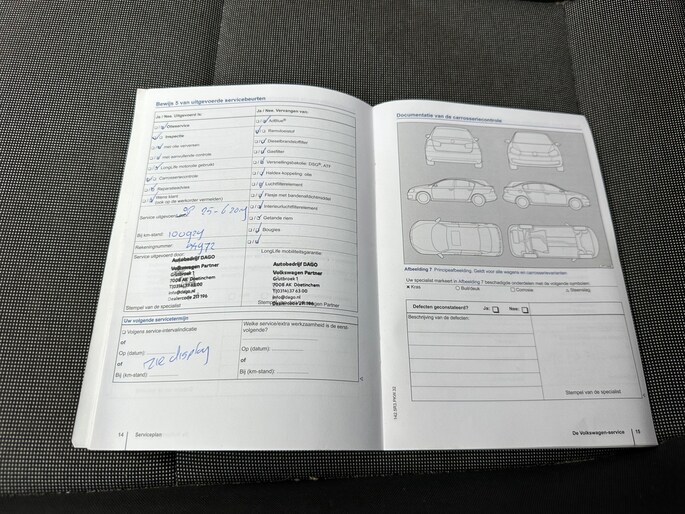 Bewijs 5 van uitgevoerde servicebeurten
Ja / Nee, Uitgevoerd is:
Olieservice
Inspectie
met aanvullende controle
LongLife motorolie gebruikt
Carrosseriecontrole
Reparatieservice
(ook op de werkorder vermelden)
Service uitgevoerd op
Bij km-stand:
Rekeningnummer: 54972
Service uitgevoerd door:
Autobedrijf DAGO
Volkswagen Partner
Grutbroek 1
7008 AK Doetinchem
T(0314)37 63 00
info@dago.nl
Dealercode 20.196
Stempel van de specialist
Ja / Nee, Vervangen van:
AdBlue®
Remvloeistof
Dieselbrandstoffilter
Gasfilter
Haldex koppeling: olie
Luchtfilterelement
Flesje met bandenafdichtmiddel
Interieurluchtfilterelement
Getande riem
Bougies
LongLife mobiliteitsgarantie:
Autobedrijf DAGO
Volkswagen Partner
Grutbroek 1
7008 AK Doetinchem
T(0314)37 63 00
info@dago.nl
Dealercode 20.196
Uw volgende servicetermijn
Volgens service-intervalindicatie
of
Op (datum):
of
Bij (km-stand):
zie display
Welke service/extra werkzaamheid is de eerstvolgende?
Op (datum):
of
Bij (km-stand):
14 Serviceplan
Documentatie van de carrosseriecontrole
Afbeelding 7 Principeafbeelding. Geldt voor alle wagens en carrosserievarianten.
Uw specialist markeert in Afbeelding 7 beschadigde onderdelen met de volgende symbolen:
Kras
Buil/deuk
Corrosie
Steenslag
Defecten geconstateerd? Ja: Nee:
Beschrijving van de defecten:
Stempel van de specialist
De Volkswagen-service